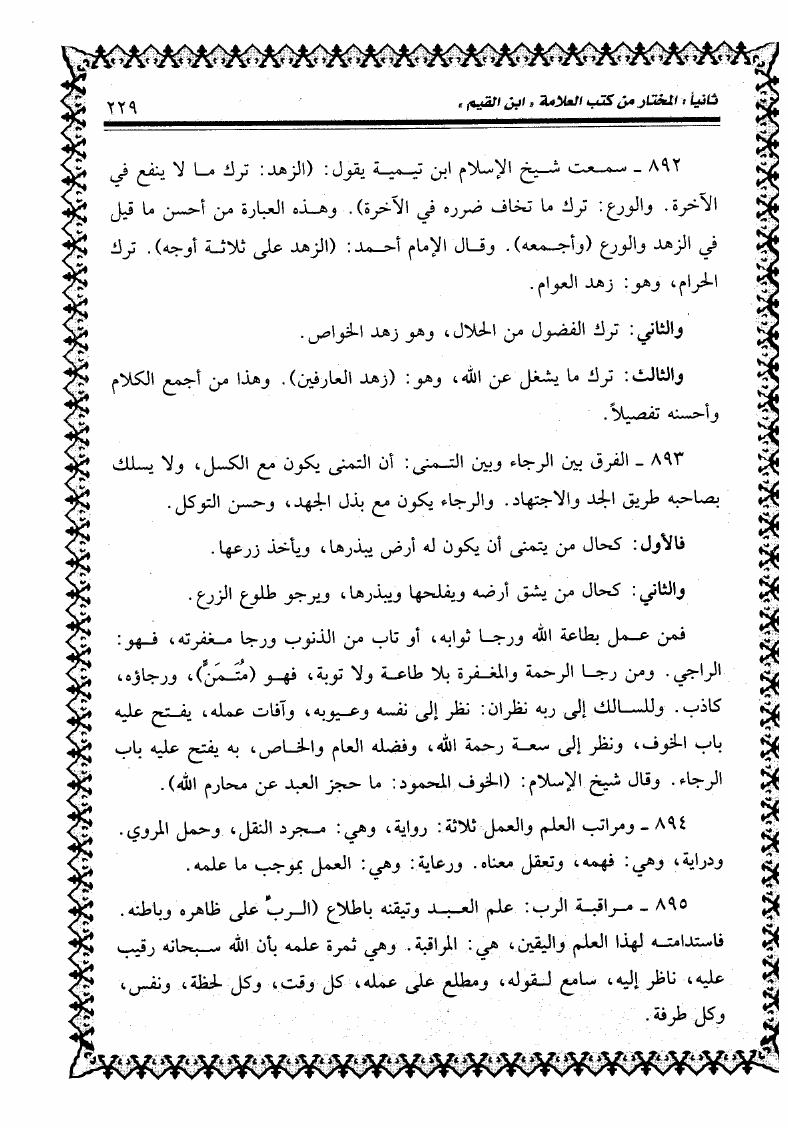 ثانياً : المختار من كتب العلامة « ابن القيم »
٢٢٩
٨٩٢ ـ سمعت شيخ الإسلام ابن تيمية يقول: (الزهد: ترك ما لا ينفع في
الآخرة. والورع: ترك ما تخاف ضرره في الآخرة). وهذه العبارة من أحسن ما قيل
في الزهد والورع (وأجمعه). وقال الإمام أحمد: (الزهد على ثلاثة أوجه). ترك
الحرام، وهو: زهد العوام.
والثاني: ترك الفضول من الحلال، وهو زهد الخواص.
والثالث: ترك ما يشغل عن الله، وهو: (زهد العارفين). وهذا من أجمع الكلام
وأحسنه تفصيلاً.
٨٩٣ ـ الفرق بين الرجاء وبين التمنى: أن التمنى يكون مع الكسل، ولا يسلك
بصاحبه طريق الجد والاجتهاد. والرجاء يكون مع بذل الجهد، وحسن التوكل.
فالأول: كحال من يتمنى أن يكون له أرض يبذرها، ويأخذ زرعها.
والثاني: كحال من يشق أرضه ويفلحها ويبذرها، ويرجو طلوع الزرع.
فمن عمل بطاعة الله ورجا ثوابه، أو تاب من الذنوب ورجا مغفرته، فهو:
الراجي. ومن رجا الرحمة والمغفرة بلا طاعة ولا توبة، فهو (مُتَمَنٍّ)، ورجاؤه،
كاذب. وللسالك إلى ربه نظران: نظر إلى نفسه وعيوبه، وآفات عمله، يفتح عليه
باب الخوف، ونظر إلى سعة رحمة الله، وفضله العام والخاص، به يفتح عليه باب
الرجاء. وقال شيخ الإسلام: (الخوف المحمود: ما حجز العبد عن محارم الله).
٨٩٤ ـ ومراتب العلم والعمل ثلاثة: رواية، وهي: مجرد النقل، وحمل المروي.
ودراية، وهي: فهمه، وتعقل معناه. ورعاية: وهي: العمل بموجب ما علمه.
٨٩٥ ـ مراقبة الرب: علم العبد وتيقنه باطلاع (الربّ على ظاهره وباطنه.
فاستدامته لهذا العلم واليقين، هي: المراقبة. وهي ثمرة علمه بأن الله سبحانه رقيب
عليه، ناظر إليه، سامع لقوله، ومطلع على عمله، كل وقت، وكل لحظة، ونفس،
وكل طرفة.